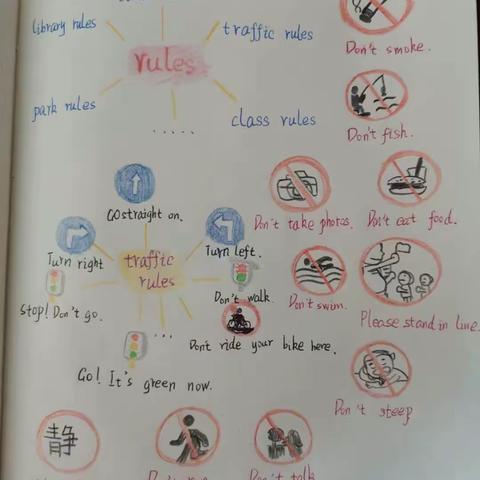 library rules
traffic rules
rules
Don't smoke.
park rules
class rules
.....
Don't fish.
Go straight on.
Don't take photos.
Don't eat food.
Turn right
Turn left.
traffic
rules
Stop! Don't go.
Don't walk.
Don't swim.
Please stand in line.
...
Dont ride your bike here.
Go! It's green now.
Don't steep
静
Don't talk